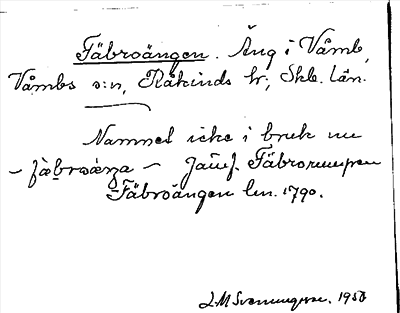 Fäbroängen. Äng i Våmb,
Våmbs s:n, Kåkinds hr; Skb. län.
Namnet icke i bruk nu
– fàbroäŋa – Jämf.
Fäbroängen lm. 1790.
1950